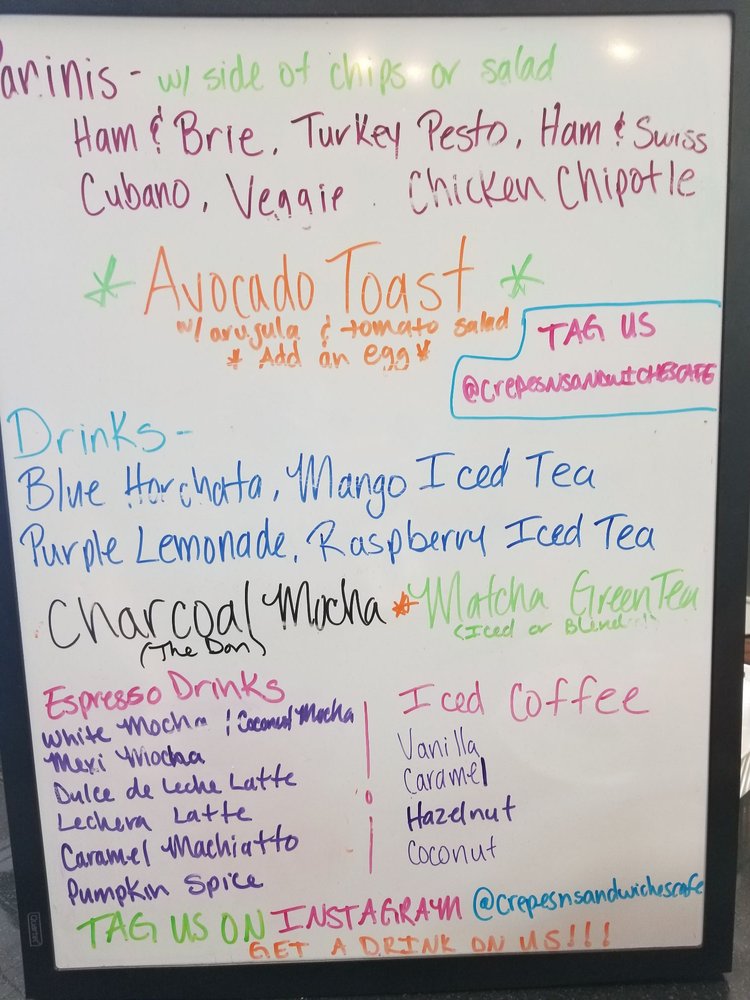 arinis - w/ side of chips or salad
Ham & Brie, Turkey Pesto, Ham & Swiss
Cubano, Veggie. Chicken Chipotle
* Avocado Toast *
w/ arugula & tomato salad
* Add an egg *
TAG US
@CREPESNSANDWICHESCAFE
Drinks -
Blue Horchata, Mango Iced Tea
Purple Lemonade, Raspberry Iced Tea
Charcoal Mocha * Matcha Green Tea
(The Don)
(Iced or Blend
Espresso Drinks
White Mocha / Coconut Mocha
Mexi Mocha
Dulce de Leche Latte
Lechera Latte
Caramel Machiatto
Pumpkin Spice
Iced Coffee
Vanilla
Caramel
Hazelnut
Coconut
TAG US ON INSTAGRAM @crepesnsandwichescafe
GET A DRINK ON US!!!